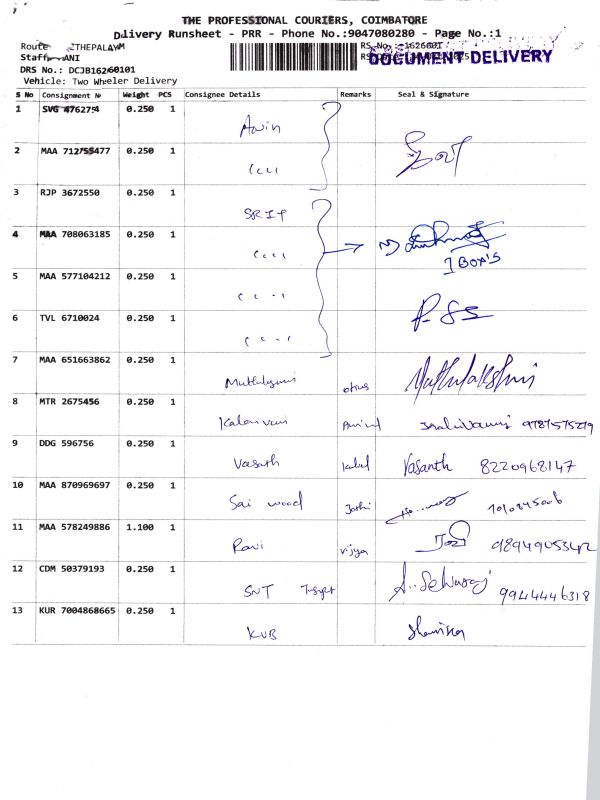 THE PROFESSIONAL COURIERS, COIMBATORE
Delivery Runsheet - PRR - Phone No.:9047080280 - Page No.:1
Route THEPALAYAM
Staff ANI
DOCUMENT DELIVERY
DRS No.: DCJB16260101
Vehicle: Two Wheeler Delivery
S No Consignment № Weight PCS Consignee Details Remarks Seal & Signature
1 SVG 4762754 0.250 1 Arvin
2 MAA 712755477 0.250 1
3 RJP 3672550 0.250 1 SRIP
4 MAA 708063185 0.250 1
1 Box's
5 MAA 577104212 0.250 1
6 TVL 6710024 0.250 1
7 MAA 651663862 0.250 1 Muthulakshmi
8 MTR 2675456 0.250 1 Kalaivani
9 DDG 596756 0.250 1 Vasanth Vasanth 8220968147
10 MAA 870969697 0.250 1 Sai wood Jothi
11 MAA 578249886 1.100 1 Ravi vijya 9894905342
12 CDM 50379193 0.250 1 SNT A. Selvaraj 9944446318
13 KUR 7004868665 0.250 1 KUB